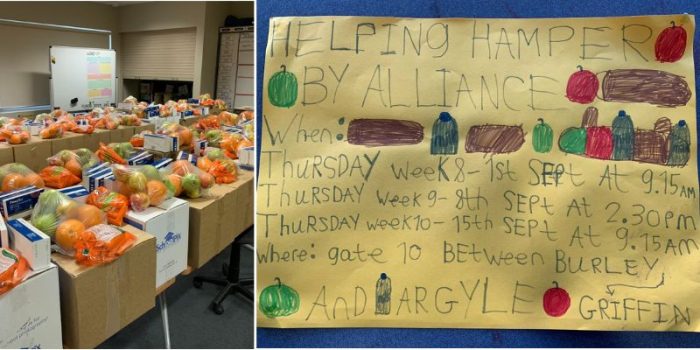 HELPING HAMPER
BY ALLIANCE
When:
THURSDAY week 8 - 1st SEPT AT 9.15AM
THURSDAY week 9 - 8th SEPT AT 2.30pm
THURSDAY week 10 - 15th SEPT AT 9.15AM
where: gate 10 BETWEEN BURLEY
AND ARGYLE GRIFFIN